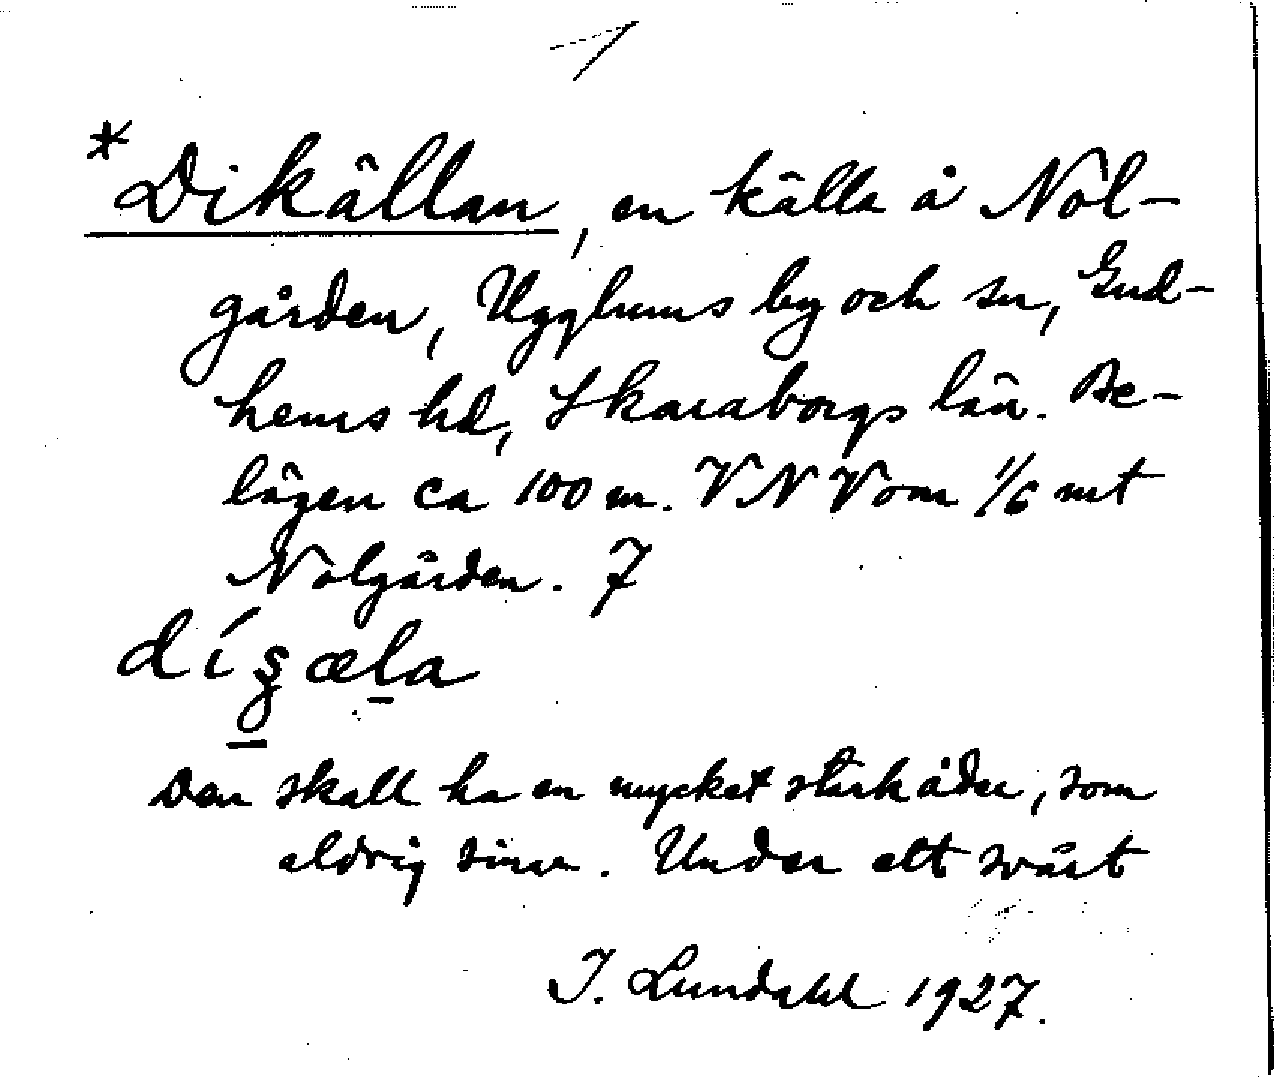 *Dikällan, en källa å Nol-
gården, Ugglums by och sn, Gud-
hems hd, Skaraborgs län. Be-
lägen ca 100 m. VNV om 1/6 mt
Nolgården. 7
Den skall ha en mycket stark åder, som
aldrig sinar. Under ett svårt
I. Lundahl 1927.